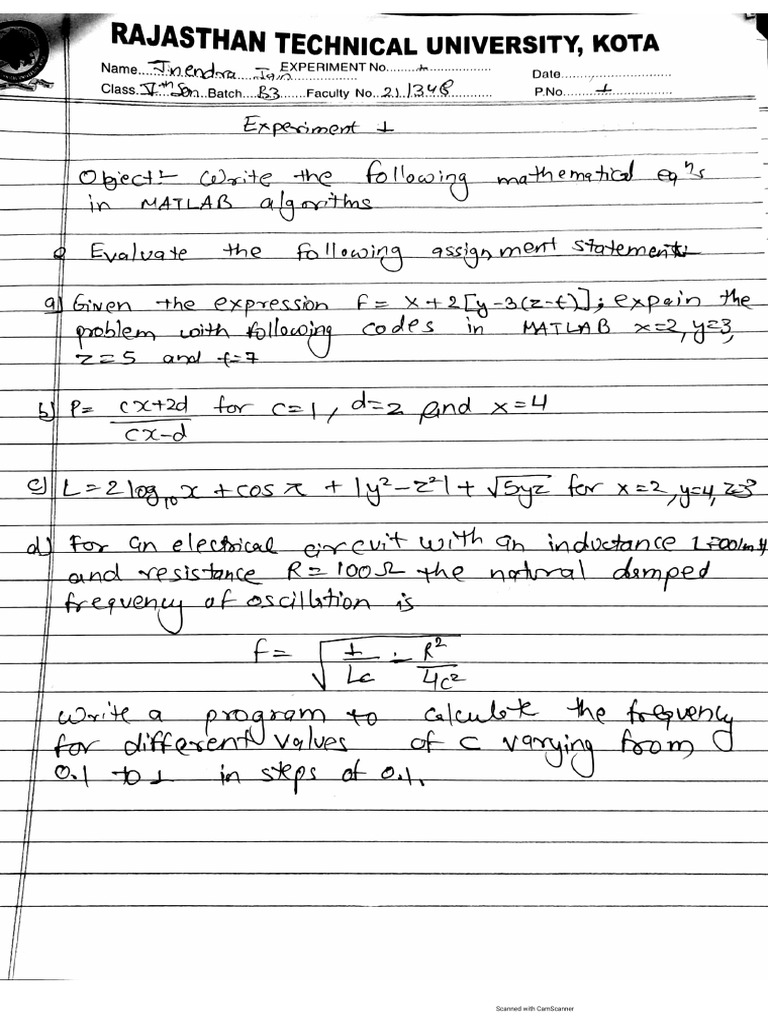 RAJASTHAN TECHNICAL UNIVERSITY, KOTA
Name....Jinendra Jain EXPERIMENT No. 1 Date
Class. Vth Sem Batch B3 Faculty No. 21/348 P.No 1
Experiment 1
Object:- Write the following mathematical eqⁿs
in MATLAB algorithms
Evaluate the following assignment statement
a) Given the expression f = x+2[y-3(z-t)]; expain the
problem with following codes in MATLAB x=2, y=3,
z=5 and t=7
b) P= cx+2d / cx-d for c=1, d=2 and x=4
c) L=2log₁₀x + cos π + |y²-z²| + √5yz for x=2, y=4, z=3
d) For an electrical circuit with an inductance
and resistance R=100Ω the natural damped
frequency of oscillation is
f= √ 1/Lc - R²/4c²
Write a program to calculate the frequency
for different values of c varying from
0.1 to 1 in steps of 0.1.
Scanned with CamScanner